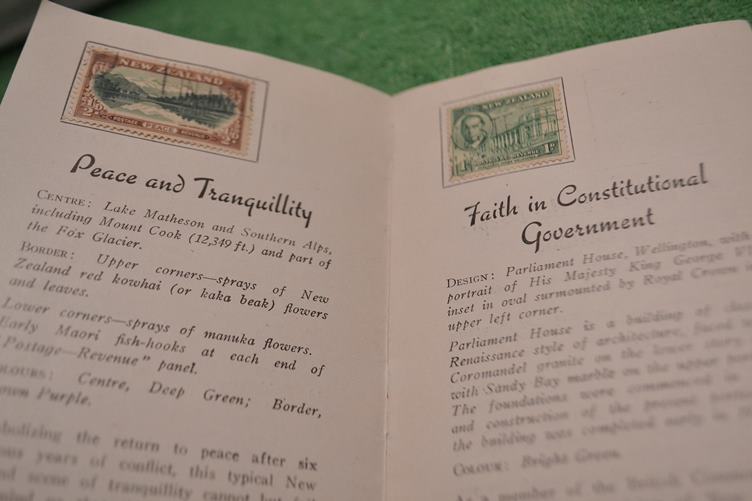 NEW ZEALAND
POSTAGE PEACE REVENUE
Peace and Tranquillity
CENTRE: Lake Matheson and Southern Alps,
including Mount Cook (12,349 ft.) and part of
the Fox Glacier.
BORDER: Upper corners—sprays of New
Zealand red kowhai (or kaka beak) flowers
and leaves.
Lower corners—sprays of manuka flowers.
Early Maori fish-hooks at each end of
Postage—Revenue" panel.
Centre, Deep Green; Border,
Purple.
the return to peace after six
years of conflict, this typical New
scene of tranquillity cannot but
NEW ZEALAND
1D
Faith in Constitutional
Government
DESIGN: Parliament House, Wellington, with
portrait of His Majesty King George
inset in oval surmounted by Royal Crown
upper left corner.
Parliament House is a building of
Renaissance style of architecture, faced
Coromandel granite on the lower
with Sandy Bay marble on the upper
The foundations were commenced in
and construction of the present
the building was completed early in
COLOUR: Bright Green.
As a member of the British